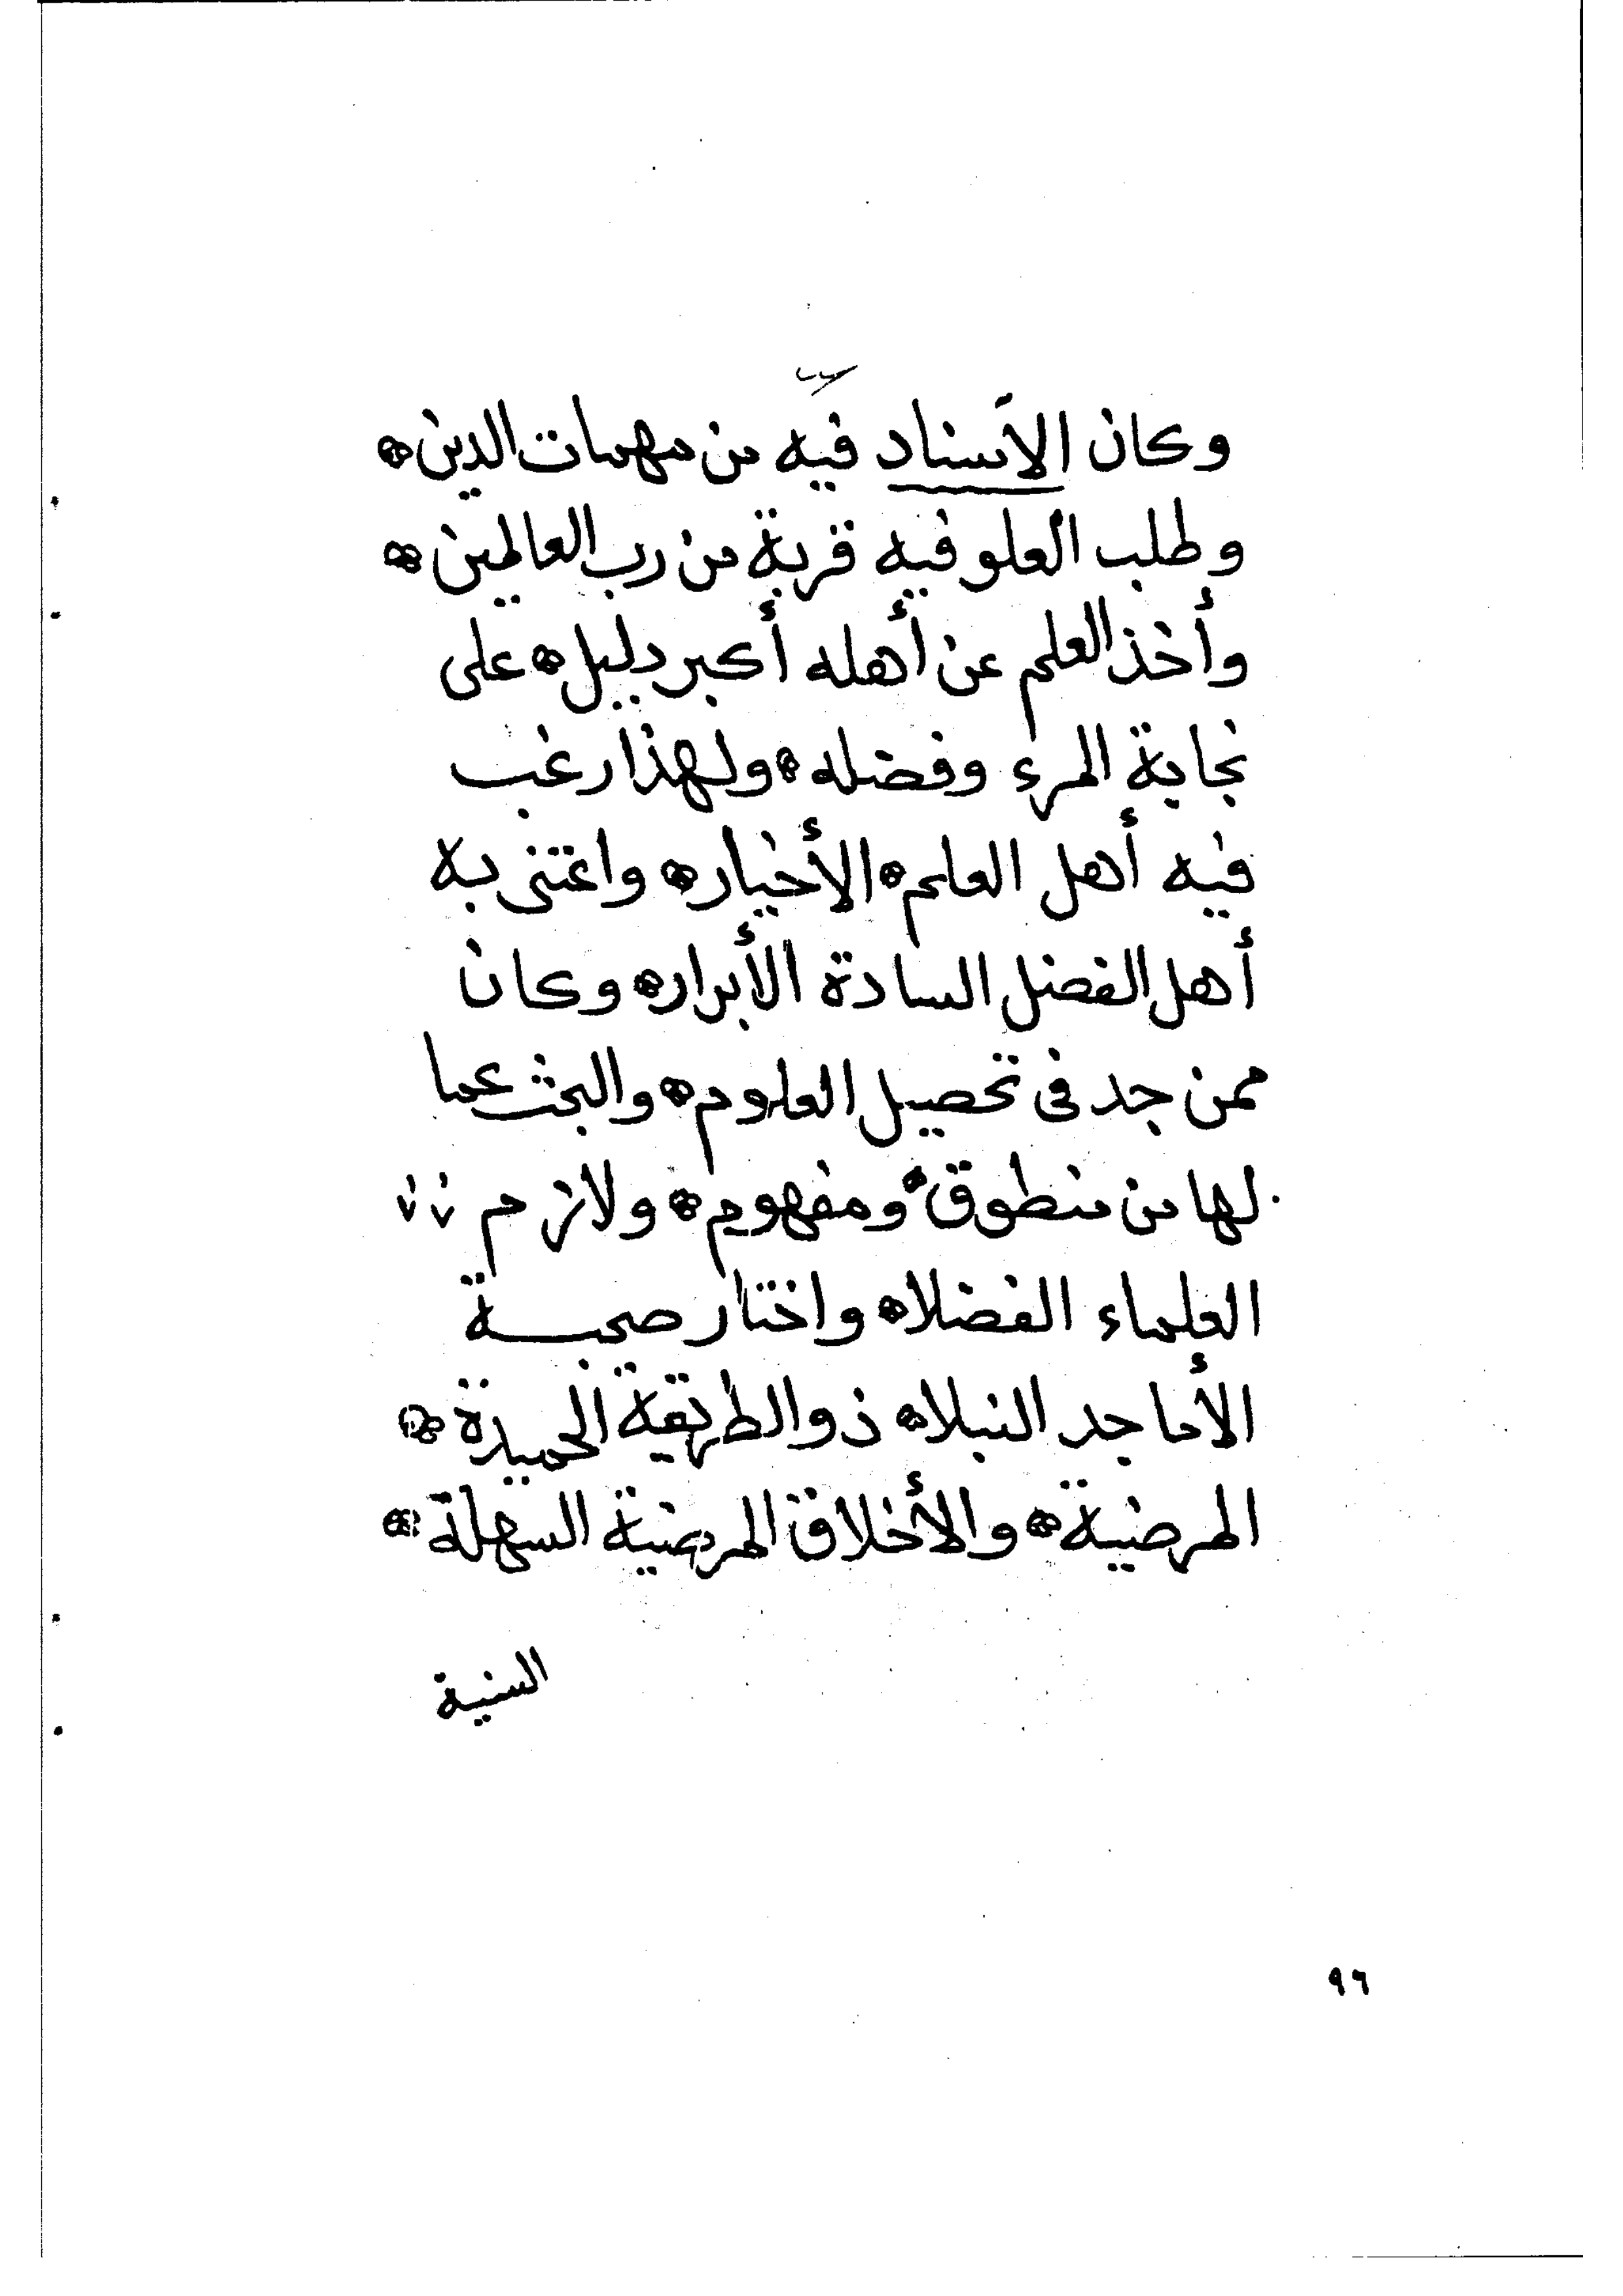 وكان الاسناد فيه من مهمات الدين
وطلب العلو فيه قربة من رب العالمين
وأخذ العلم عن أهله أكبر دليل على
نجابة المرء وفضله ولهذا رغب
فيه أهل العلم الأخيار واعتنى به
أهل الفضل السادة الأبرار وكان
ممن جد في تحصيل العلوم والبحث عما
لها من منطوق ومفهوم ولازم
العلماء الفضلا واختار صحبة
الأماجد النبلا ذو الطريقة الحميدة
المرضية والأخلاق المرضية السهلة
السنية
٩٦